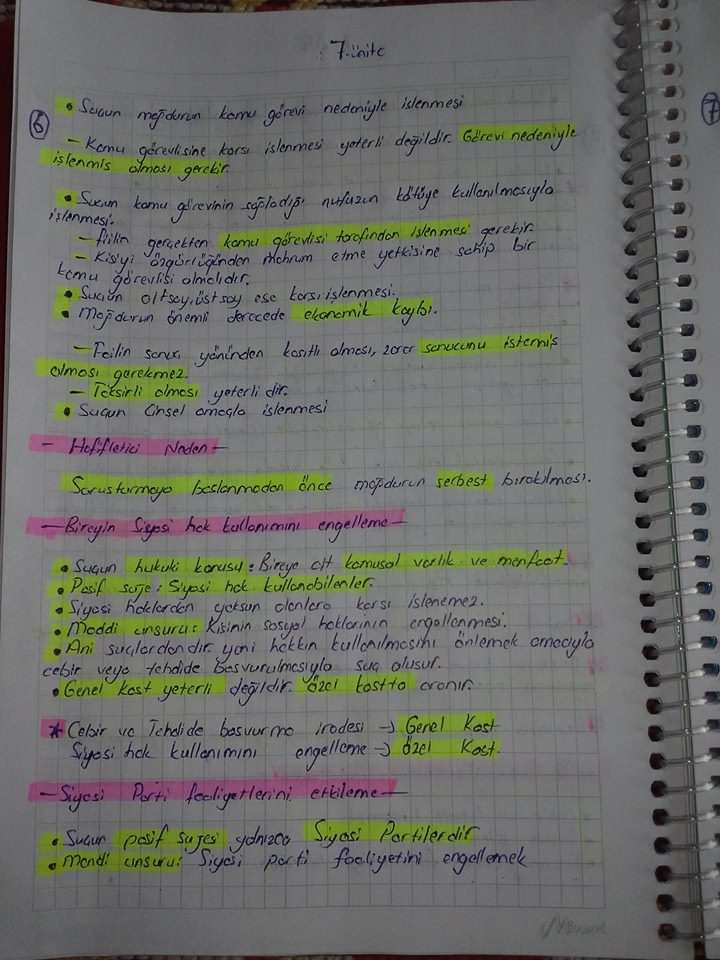 7.ünite
6
• Suçun mağdurun kamu görevi nedeniyle işlenmesi
– Kamu görevlisine karşı işlenmesi yeterli değildir. Görevi nedeniyle
işlenmiş olması gerekir.
• Suçun kamu görevinin sağladığı nufuzun kötüye kullanılmasıyla
işlenmesi.
– fiilin gerçekten kamu görevlisi tarafından işlenmesi gerekir.
– Kişiyi özgürlüğünden mahrum etme yetkisine sahip bir
kamu görevlisi olmalıdır.
• Suçun altsoy, üstsoy eşe karşı işlenmesi.
• Mağdurun önemli derecede ekonomik kaybı.
– Failin sonuç yönünden kasıtlı olması, zarar sonucunu istemiş
olması gerekmez.
– Taksirli olması yeterlidir.
• Suçun Cinsel amaçla işlenmesi
– Hafifletici Neden –
Soruşturmaya başlanmadan önce mağdurun serbest bırakılması.
– Bireyin Siyasi hak kullanımını engelleme –
• Suçun hukuki konusu: Bireye ait kamusal varlık ve menfaat.
• Pasif suje: Siyasi hak kullanabilenler.
• Siyasi haklardan yoksun olanlara karşı işlenemez.
• Maddi unsuru: Kişinin sosyal haklarının engellenmesi.
• Ani suçlardandır yani hakkın kullanılmasını önlemek amacıyla
cebir veya tehdide başvurulmasıyla suç oluşur.
• Genel kast yeterli değildir. Özel kastta aranır.
* Cebir ve Tehdide başvurma iradesi → Genel Kast
Siyasi hak kullanımını engelleme → Özel Kast.
– Siyasi Parti faaliyetlerini etkileme –
• Suçun pasif sujesi yalnızca Siyasi Partilerdir
• Mandi unsuru: Siyasi parti faaliyetini engellemek
7